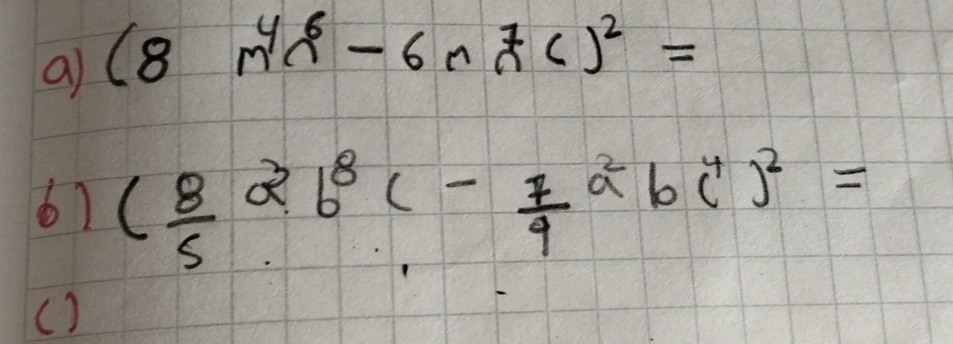 a) (8 m⁴n⁶ - 6 m n⁷ c)² =
b) (8/5 a² b⁸ c - 7/9 a² b c⁴)² =
c)